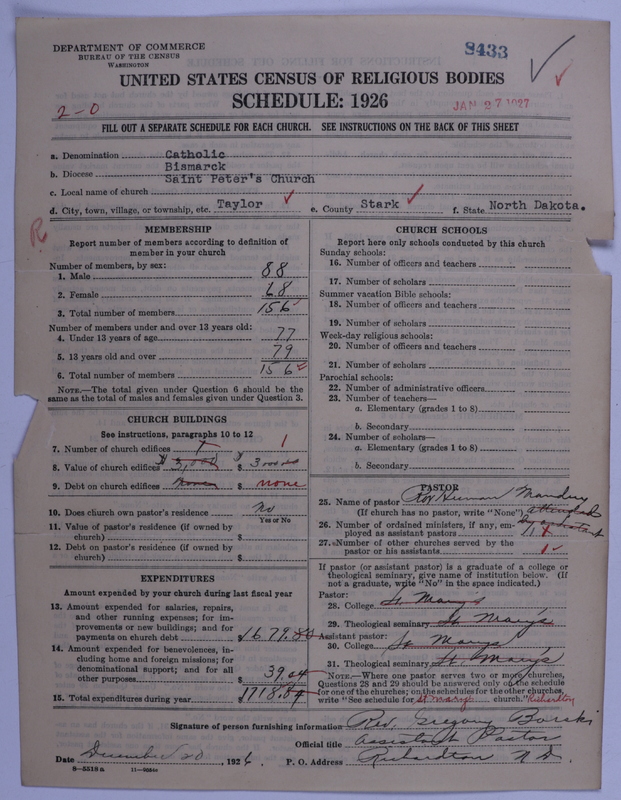 DEPARTMENT OF COMMERCE
BUREAU OF THE CENSUS
WASHINGTON
8433
UNITED STATES CENSUS OF RELIGIOUS BODIES
SCHEDULE: 1926
2-0
JAN 27 1927
FILL OUT A SEPARATE SCHEDULE FOR EACH CHURCH. SEE INSTRUCTIONS ON THE BACK OF THIS SHEET
a. Denomination Catholic
b. Diocese Bismarck
c. Local name of church Saint Peter's Church
d. City, town, village, or township, etc. Taylor e. County Stark f. State North Dakota.
R
MEMBERSHIP
Report number of members according to definition of
member in your church
Number of members, by sex:
1. Male 88
2. Female 68
3. Total number of members 156
Number of members under and over 13 years old:
4. Under 13 years of age 77
5. 13 years old and over 79
6. Total number of members 156
NOTE.—The total given under Question 6 should be the
same as the total of males and females given under Question 3.
CHURCH BUILDINGS
See instructions, paragraphs 10 to 12
7. Number of church edifices 1
8. Value of church edifices $ 3000.00
9. Debt on church edifices $ none
10. Does church own pastor's residence no
Yes or No
11. Value of pastor's residence (if owned by
church) $
12. Debt on pastor's residence (if owned by
church) $
EXPENDITURES
Amount expended by your church during last fiscal year
13. Amount expended for salaries, repairs,
and other running expenses; for im-
provements or new buildings; and for
payments on church debt $1679.80
14. Amount expended for benevolences, in-
cluding home and foreign missions; for
denominational support; and for all
other purposes $ 39.04
15. Total expenditures during year $1718.84
CHURCH SCHOOLS
Report here only schools conducted by this church
Sunday schools:
16. Number of officers and teachers
17. Number of scholars
Summer vacation Bible schools:
18. Number of officers and teachers
19. Number of scholars
Week-day religious schools:
20. Number of officers and teachers
21. Number of scholars
Parochial schools:
22. Number of administrative officers
23. Number of teachers—
a. Elementary (grades 1 to 8)
b. Secondary
24. Number of scholars—
a. Elementary (grades 1 to 8)
b. Secondary
PASTOR
25. Name of pastor Rev
(If church has no pastor, write "None") attended
by assistant
26. Number of ordained ministers, if any, em-
ployed as assistant pastors
27. Number of other churches served by the
pastor or his assistants 1
If pastor (or assistant pastor) is a graduate of a college or
theological seminary, give name of institution below. (If
not a graduate, write "No" in the space indicated.)
Pastor:
28. College St Marys
29. Theological seminary St Mary's
Assistant pastor:
30. College St Marys
31. Theological seminary St Mary's
NOTE.—Where one pastor serves two or more churches,
Questions 28 and 29 should be answered only on the schedule
for one of the churches; on the schedules for the other churches,
write "See schedule for St Marys church." Richardton
Signature of person furnishing information Rev. Gregory Borski
Official title assistant Pastor
Date December 20, 1926 P. O. Address Richardton N. D.
8—5518a 11—9034